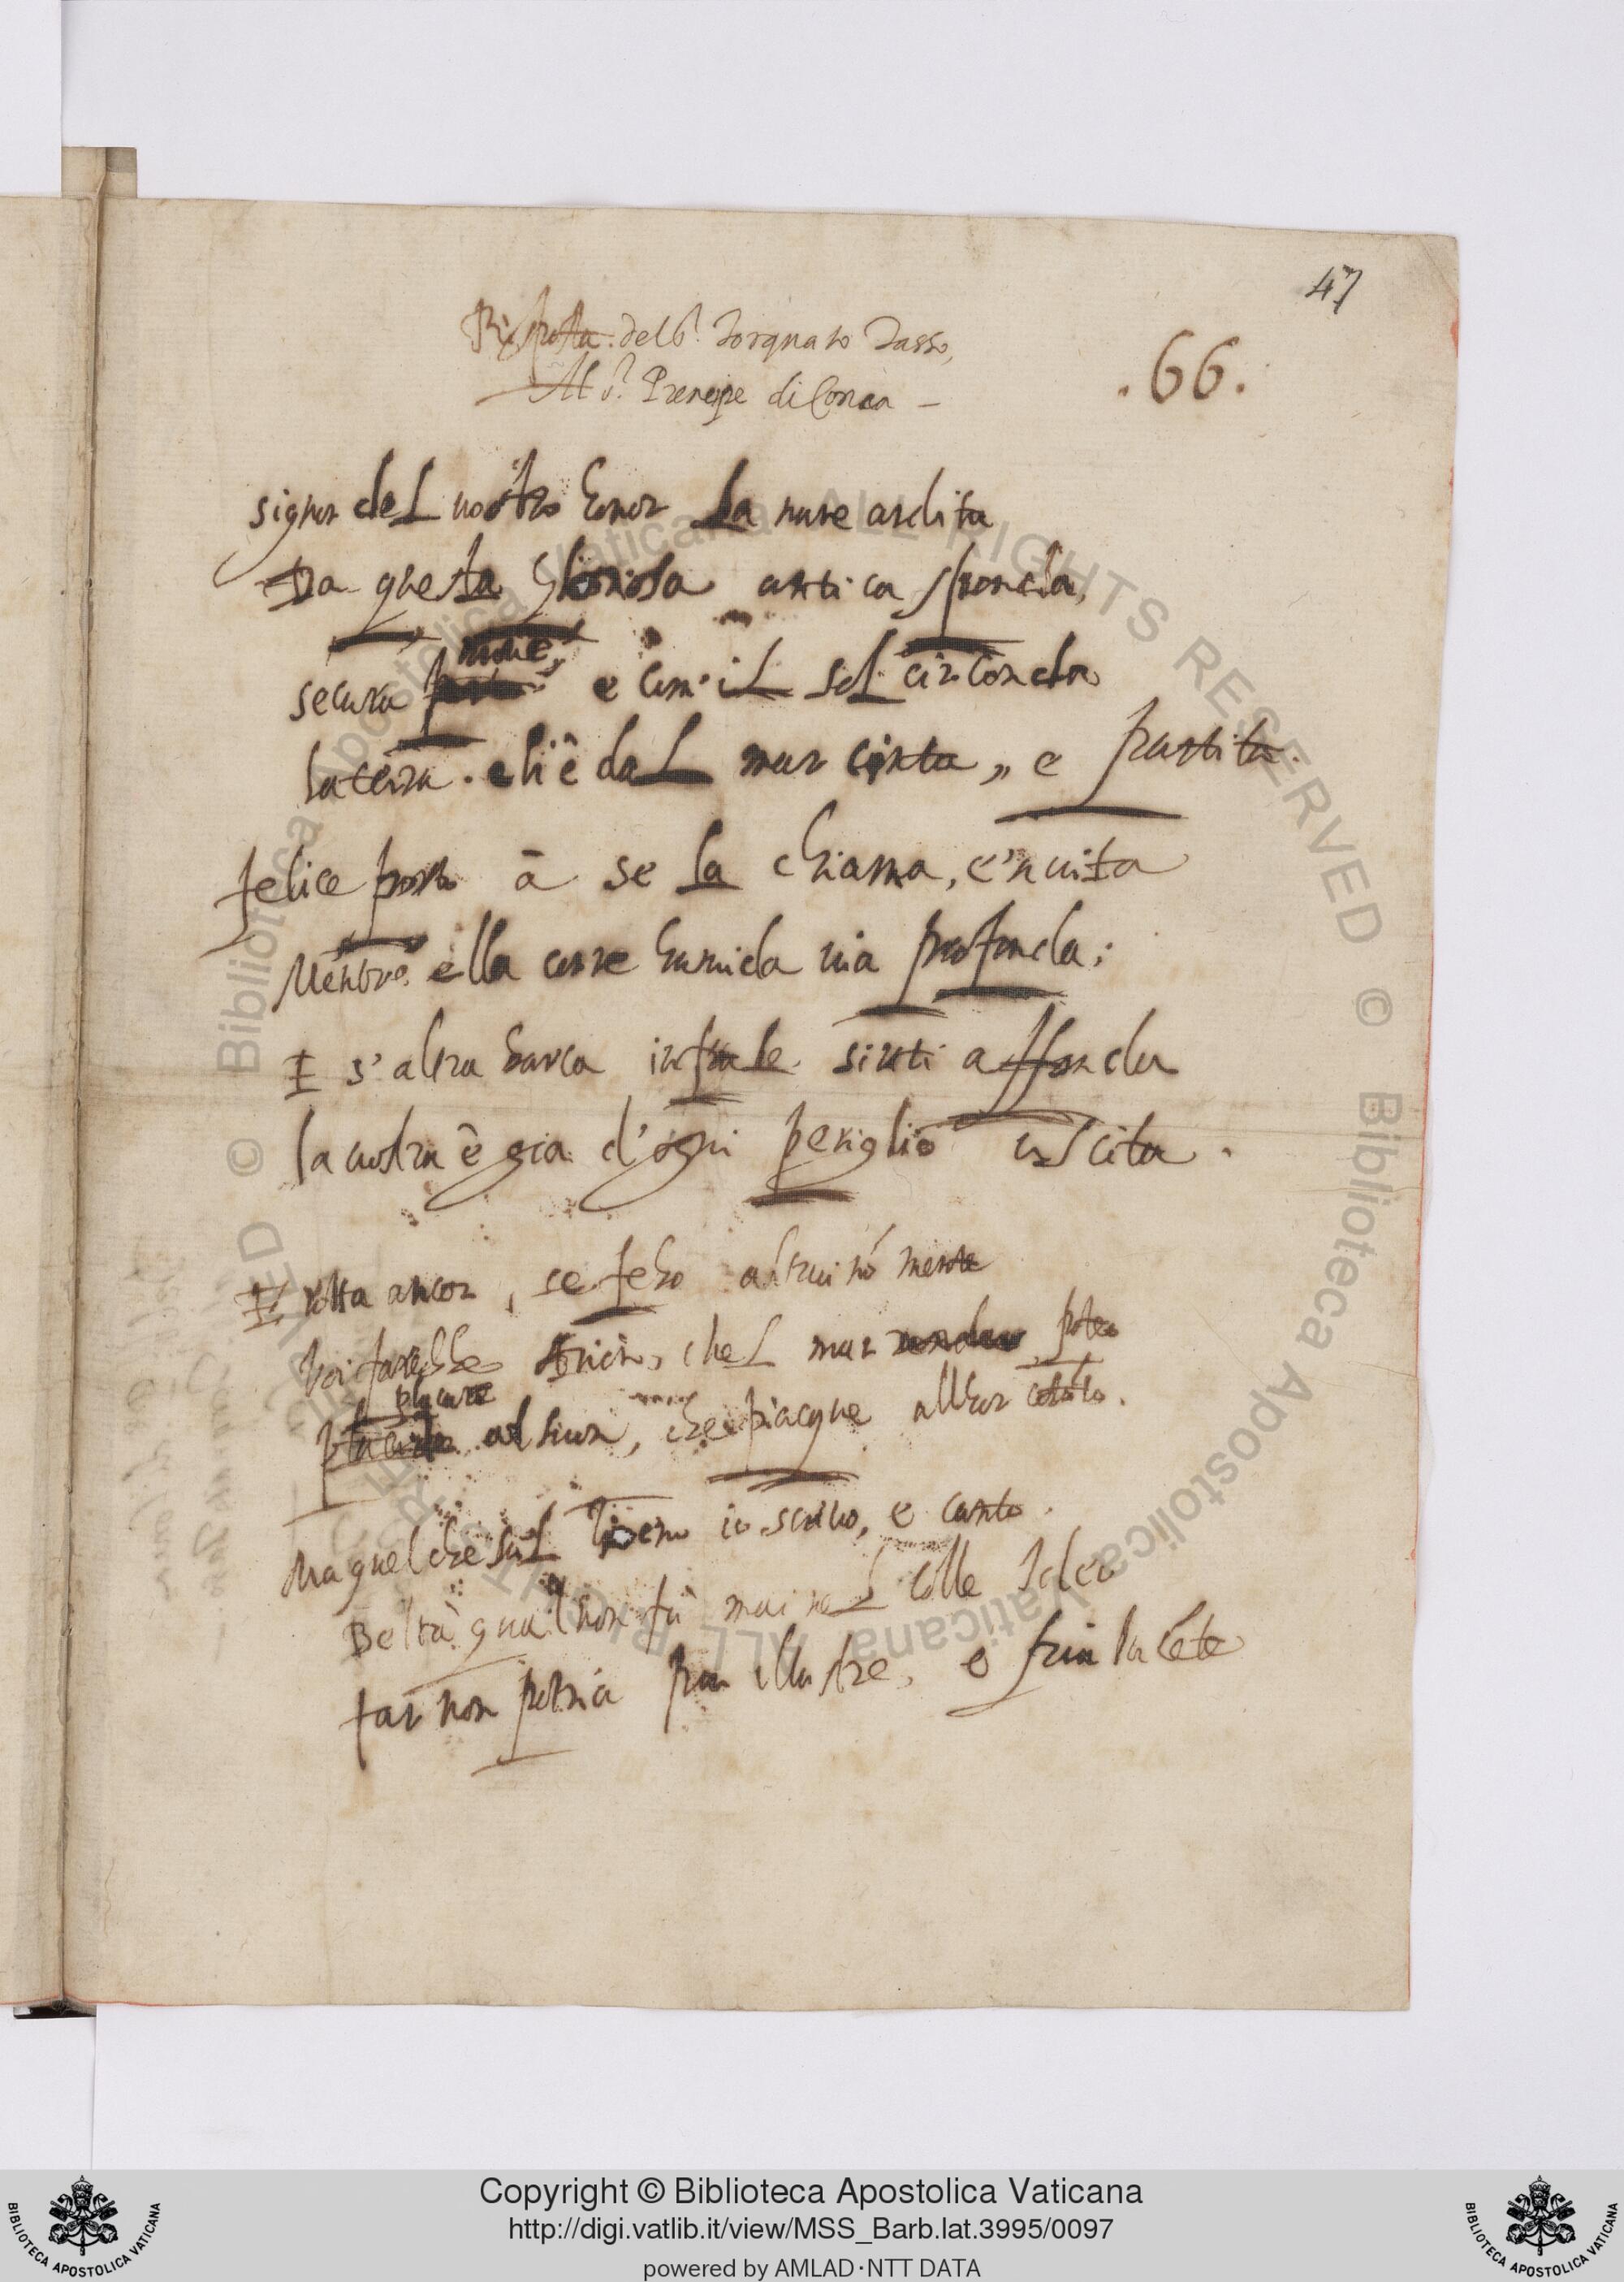 47
Risposta del S.r Torquato Tasso,
Al S.r Prencipe di Conca –
.66.
Signor del vostro honor la nave ardita
Da questa gloriosa antica sponda,
move,
secura e com' il sol circonda
la terra. ch'è dal mar cinta, e partita.
felice porto à se la chiama, e'nvita
Mentre ella corre humida via profonda;
E s'altra barca in frale sirti affonda
la vostra è gia d'ogni periglio uscita.
E rotta ancor, se febo altrui nõ mente
Voi fareste Arion, che 'l mar potea
placare
al suon, che piacque allhor cotanto.
Ma quel che sul Tirreno io scrivo, e canto.
Beltà qual non fù mai nel colle Ideo
far non potria piu illustre, e piu lucẽte
© Biblioteca Apostolica Vaticana ALL RIGHTS RESERVED © Biblioteca Apostolica Vaticana ALL RIGHTS RESERVED
Copyright © Biblioteca Apostolica Vaticana
http://digi.vatlib.it/view/MSS_Barb.lat.3995/0097
powered by AMLAD·NTT DATA
BIBLIOTECA APOSTOLICA VATICANA
BIBLIOTECA APOSTOLICA VATICANA